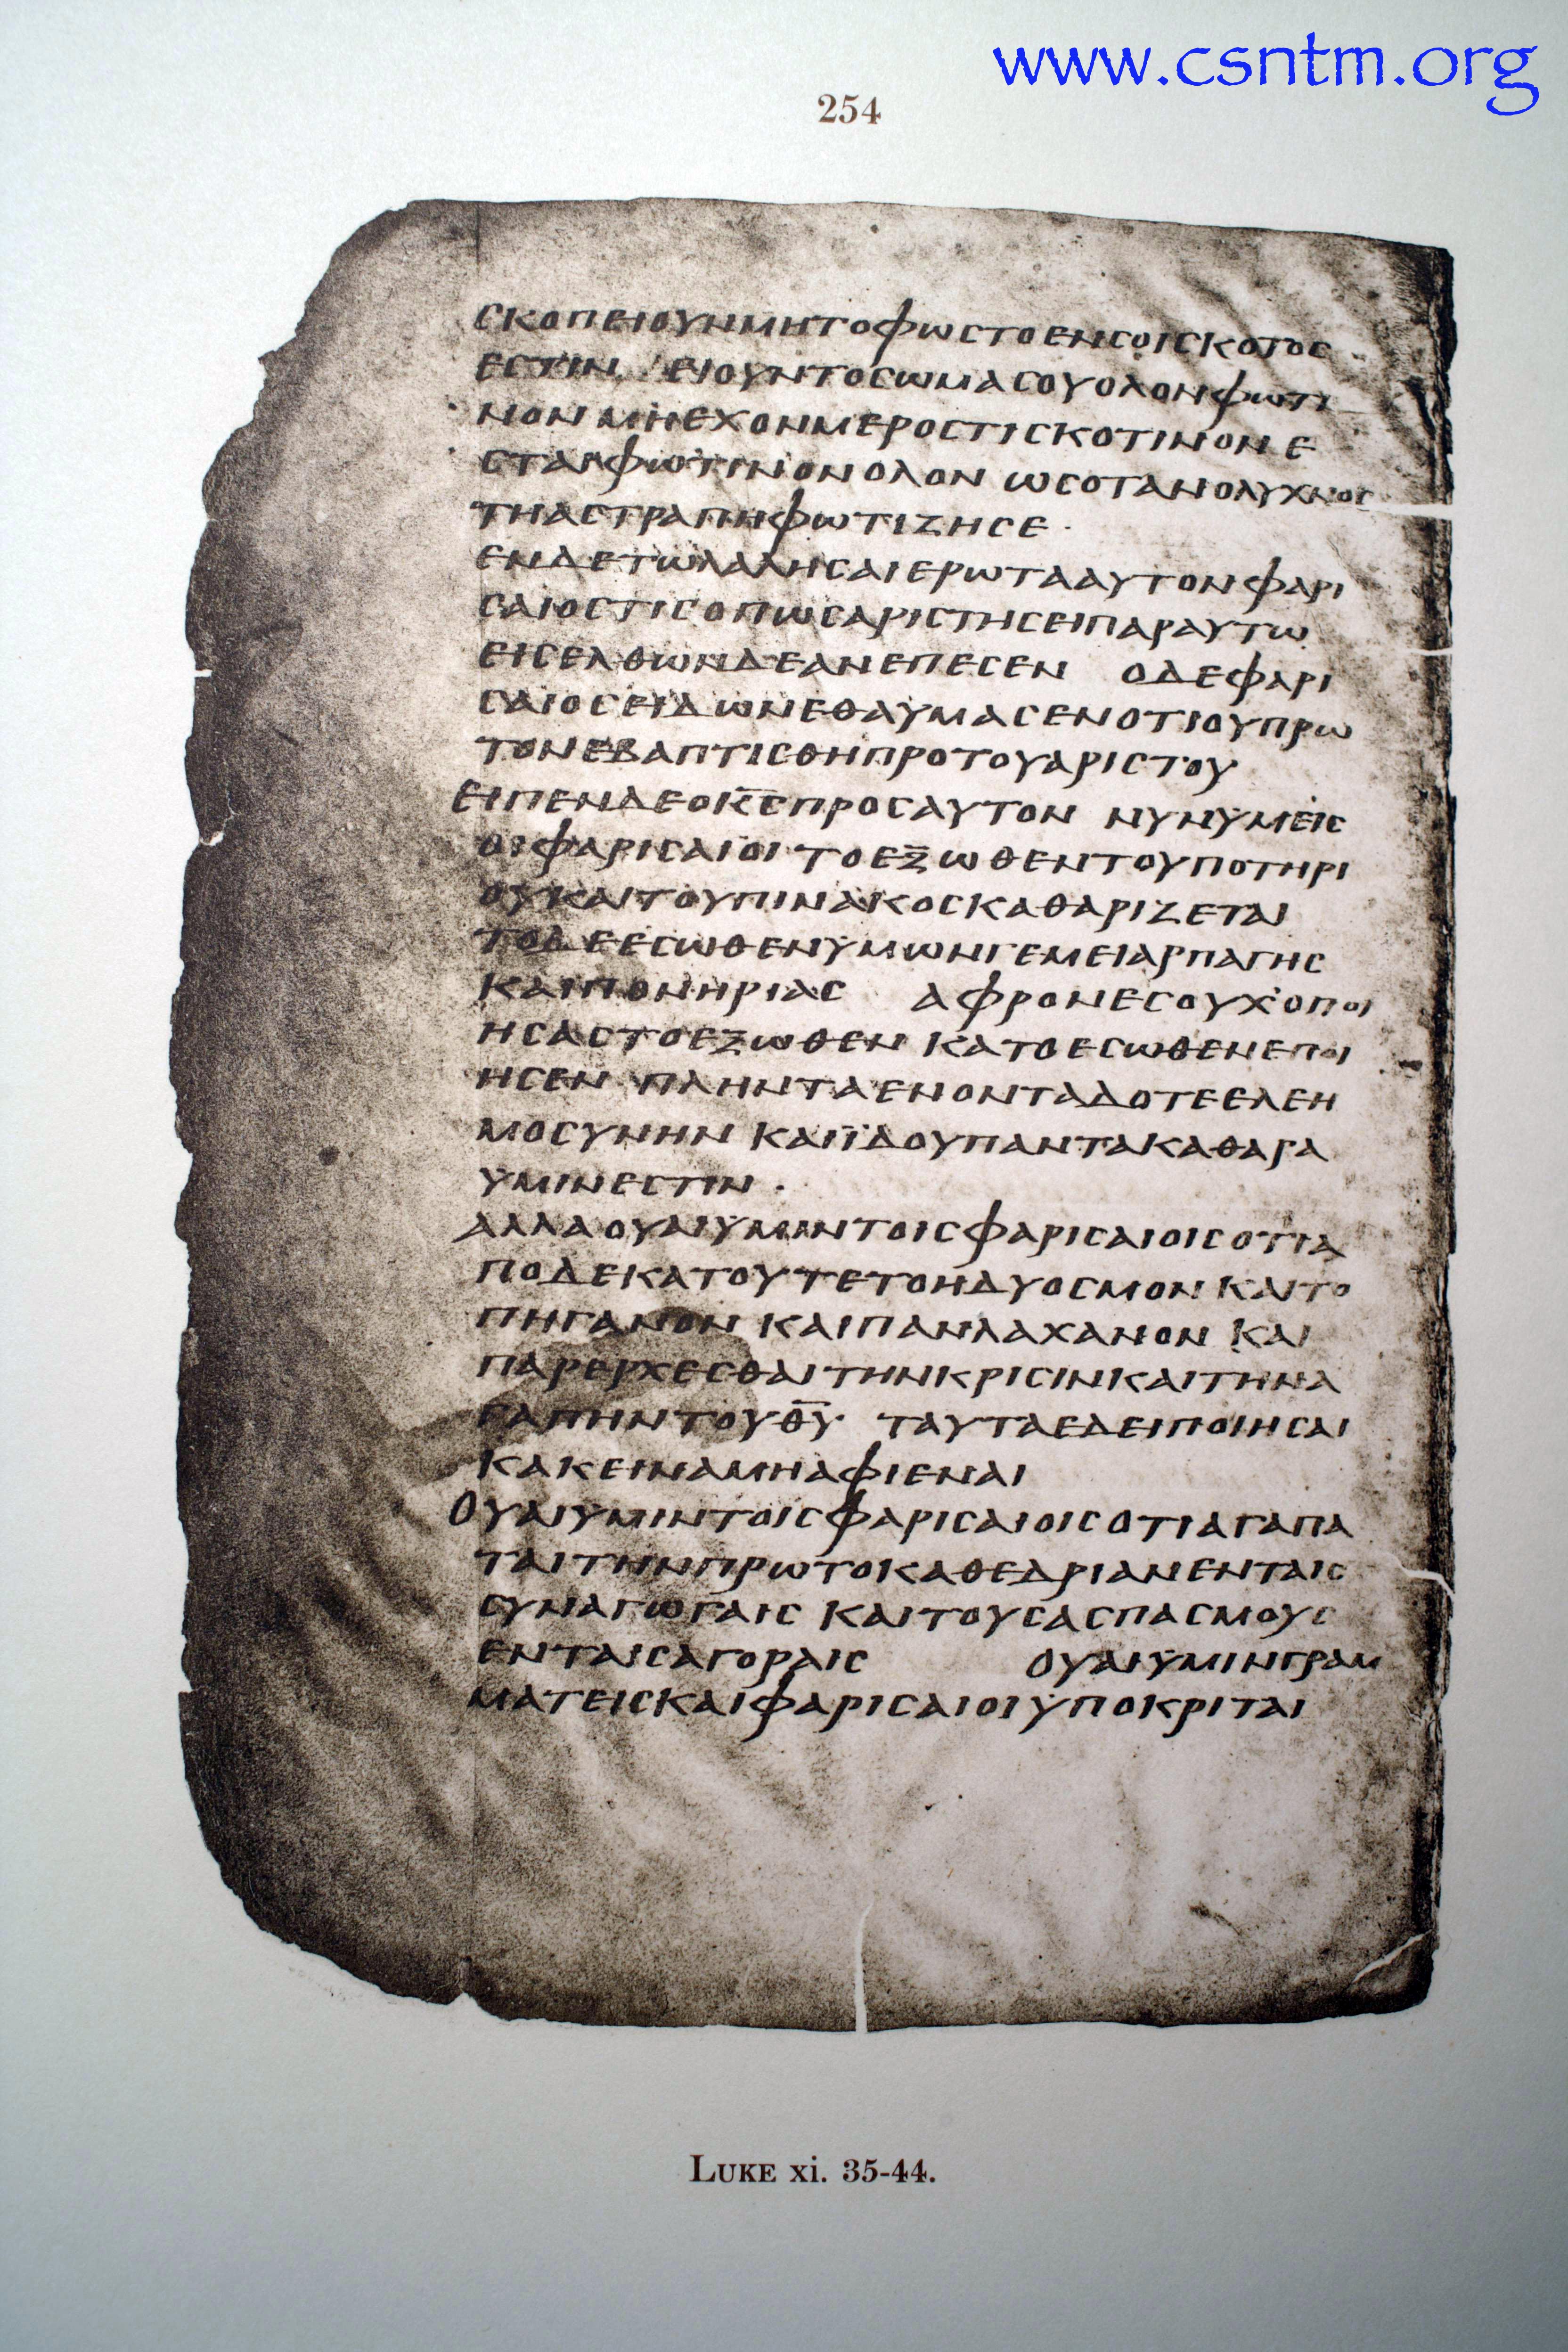 www.csntm.org
254
ϹΚΟΠΕΙΟΥΝΜΗΤΟΦΩϹΤΟΕΝϹΟΙϹΚΟΤΟϹ
ΕϹΤΙΝ ΕΙΟΥΝΤΟϹΩΜΑϹΟΥΟΛΟΝΦΩΤΙ
ΝΟΝ ΜΗΕΧΟΝΜΕΡΟϹΤΙϹΚΟΤΙΝΟΝ Ε
ϹΤΑΙΦΩΤΙΝΟΝΟΛΟΝ ΩϹΟΤΑΝΟΛΥΧΝΟϹ
ΤΗΑϹΤΡΑΠΗΦΩΤΙΖΗϹΕ ·
ΕΝΔΕΤΩΛΑΛΗϹΑΙΕΡΩΤΑΑΥΤΟΝΦΑΡΙ
ϹΑΙΟϹΤΙϹΟΠΩϹΑΡΙϹΤΗϹΕΙΠΑΡΑΥΤΩ
ΕΙϹΕΛΘΩΝΔΕΑΝΕΠΕϹΕΝ ΟΔΕΦΑΡΙ
ϹΑΙΟϹΕΙΔΩΝΕΘΑΥΜΑϹΕΝΟΤΙΟΥΠΡΩ
ΤΟΝΕΒΑΠΤΙϹΘΗΠΡΟΤΟΥΑΡΙϹΤΟΥ
ΕΙΠΕΝΔΕΟΚ̅Ϲ̅ΠΡΟϹΑΥΤΟΝ ΝΥΝΫΜΕΙϹ
ΟΙΦΑΡΙϹΑΙΟΙ ΤΟΕΞΩΘΕΝΤΟΥΠΟΤΗΡΙ
ΟΥΚΑΙΤΟΥΠΙΝΑΚΟϹΚΑΘΑΡΙΖΕΤΑΙ
ΤΟΔΕΕϹΩΘΕΝΫΜΩΝΓΕΜΕΙΑΡΠΑΓΗϹ
ΚΑΙΠΟΝΗΡΙΑϹ ΑΦΡΟΝΕϹΟΥΧΟΠΟΙ
ΗϹΑϹΤΟΕΞΩΘΕΝ ΚΑΤΟΕϹΩΘΕΝΕΠΟΙ
ΗϹΕΝ ΠΛΗΝΤΑΕΝΟΝΤΑΔΟΤΕΕΛΕΗ
ΜΟϹΥΝΗΝ ΚΑΙΪΔΟΥΠΑΝΤΑΚΑΘΑΡΑ
ΫΜΙΝΕϹΤΙΝ ·
ΑΛΛΑΟΥΑΙΫΜΙΝΤΟΙϹΦΑΡΙϹΑΙΟΙϹΟΤΙΑ
ΠΟΔΕΚΑΤΟΥΤΕΤΟΗΔΥΟϹΜΟΝ ΚΑΙΤΟ
ΠΗΓΑΝΟΝ ΚΑΙΠΑΝΛΑΧΑΝΟΝ ΚΑΙ
ΠΑΡΕΡΧΕϹΘΑΙΤΗΝΚΡΙϹΙΝΚΑΙΤΗΝΑ
ΓΑΠΗΝΤΟΥΘ̅Υ̅ ΤΑΥΤΑΕΔΕΙΠΟΙΗϹΑΙ
ΚΑΚΕΙΝΑΜΗΑΦΙΕΝΑΙ
ΟΥΑΙΫΜΙΝΤΟΙϹΦΑΡΙϹΑΙΟΙϹΟΤΙΑΓΑΠΑ
ΤΑΙΤΗΝΠΡΩΤΟΚΑΘΕΔΡΙΑΝΕΝΤΑΙϹ
ϹΥΝΑΓΩΓΑΙϹ ΚΑΙΤΟΥϹΑϹΠΑϹΜΟΥϹ
ΕΝΤΑΙϹΑΓΟΡΑΙϹ ΟΥΑΙΫΜΙΝΓΡΑΜ
ΜΑΤΕΙϹΚΑΙΦΑΡΙϹΑΙΟΙΫΠΟΚΡΙΤΑΙ
LUKE xi. 35-44.